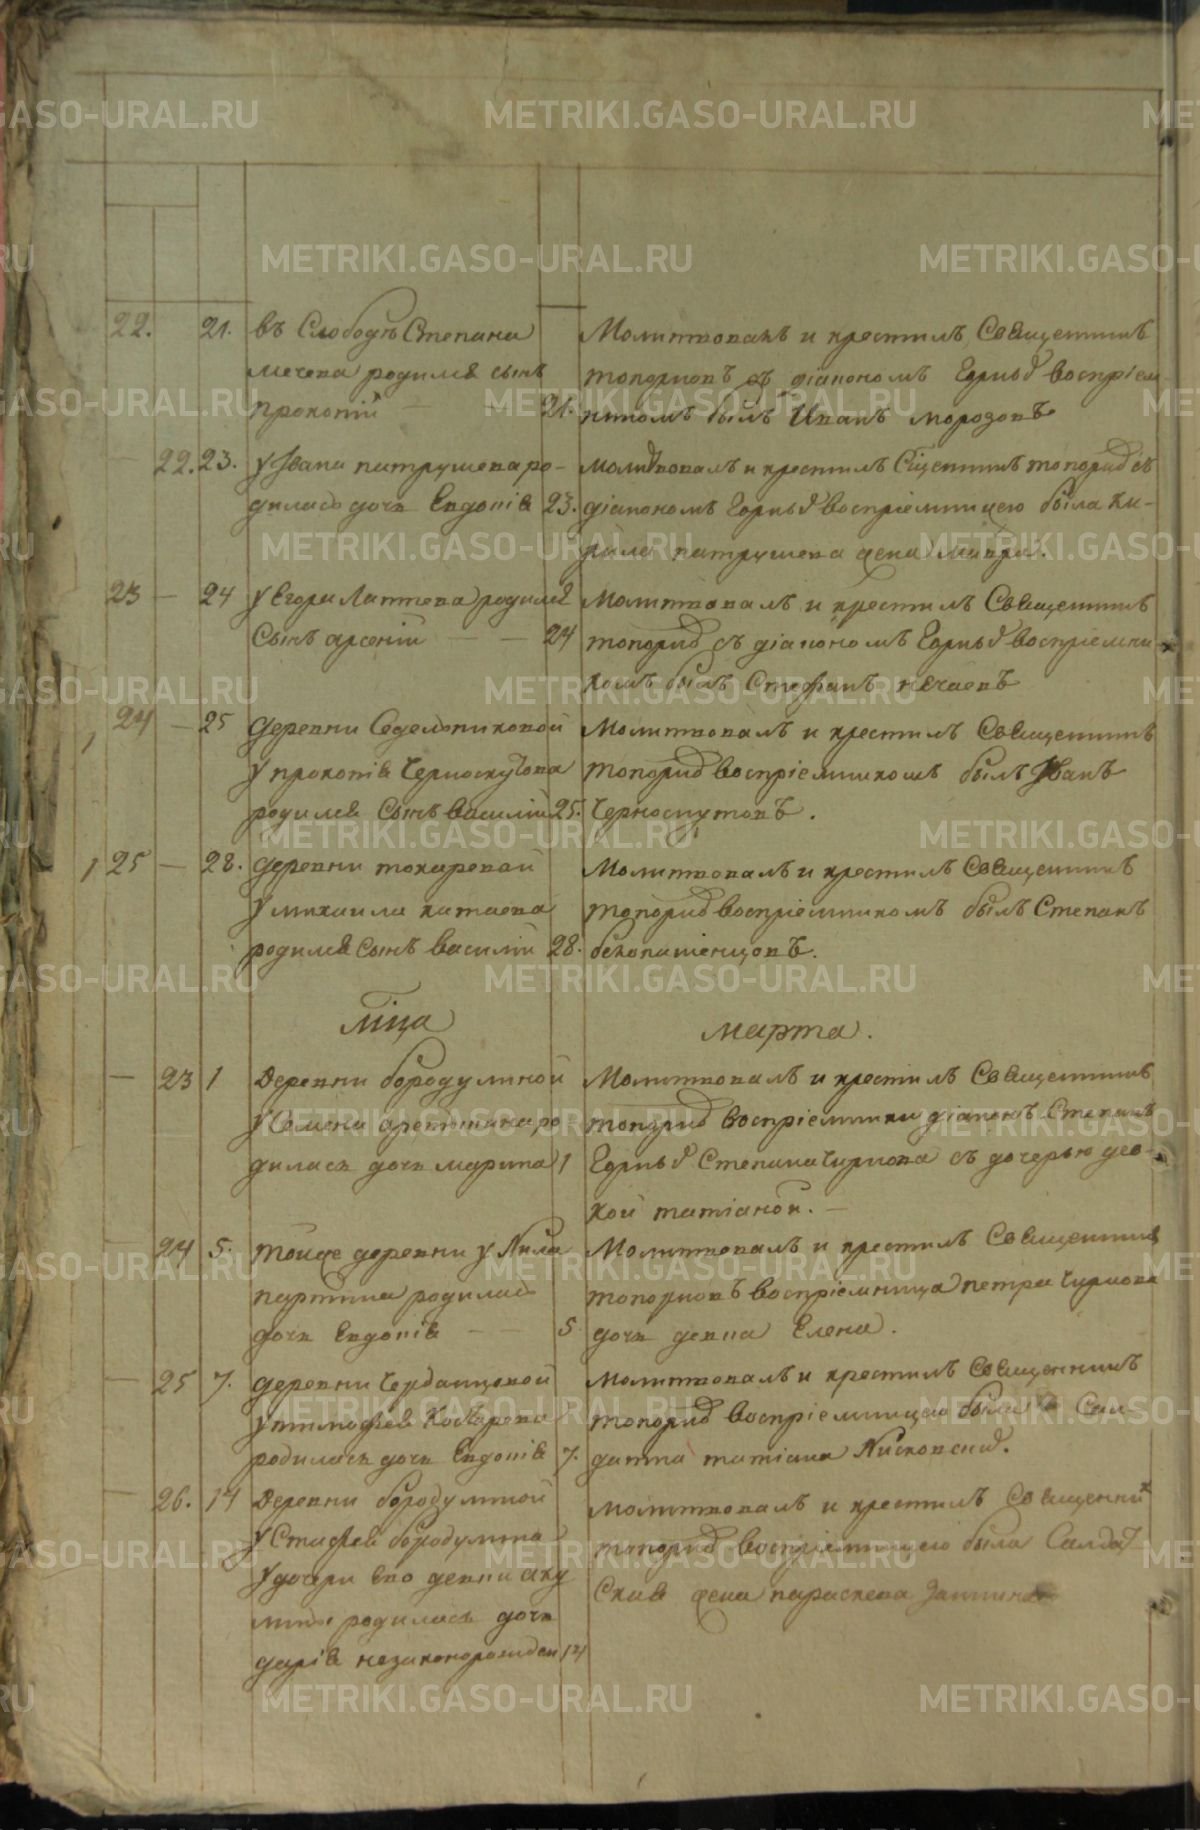 22. 21. въ Слободѣ Степана
мечева родился сынъ
прокопій — — 21.
Молитвовалъ и крестилъ Священникъ
топорковъ съ діакономъ воспріем
никомъ былъ Иванъ морозовъ
— 22. 23. у Ивана патрушева ро-
дилась дочь Евдокія 23.
молитвовалъ и крестилъ Сщенникъ
діакономъ воспріемницею была Ки-
рила патрушева жена мавра.
23 — 24 у Егора Лаптева родился
Сынъ арсеній — — 24
Молитвовалъ и крестилъ Священникъ
съ діакономъ воспріемни
комъ былъ Стефанъ нечаевъ
1 24 — 25 деревни Седельниковой
у прокопія Черноскутова
родился Сынъ василій 25.
Молитвовалъ и крестилъ Священникъ
воспріемникомъ былъ Иванъ
Черноскутовъ.
1 25 — 28. деревни токаревой
у михаила катаева
родился сынъ василій 28.
Молитвовалъ и крестилъ Священникъ
воспріемникомъ былъ Степанъ
белопашенцовъ.
Мца марта.
— 23 1 Деревни бородулиной
у Семена ро
дилась дочь марина 1
Молитвовалъ и крестилъ Священникъ
воспріемники діаконъ Степанъ
Степана Чиркова съ дочерью дев-
кой татіаной. —
— 24 5. тойже деревни у Нила
паргина родилась
дочь Евдокія — — 5
Молитвовалъ и крестилъ Священникъ
топорковъ воспріемница петра Чиркова
дочь девка Елена.
— 25 7. деревни
у тимофея Косарева
родилась дочь Евдокія 7.
молитвовалъ и крестилъ Священникъ
воспріемницею была Сол
датка татіана
— 26. 14 Деревни бородулиной
у бородулина
у дочери ево девки аку
лины родилась дочь
дарія незаконорожден 14
молитвовалъ и крестилъ Священникъ
воспріемницею была Салдат
Ская жена параскева
METRIKI.GASO-URAL.RU